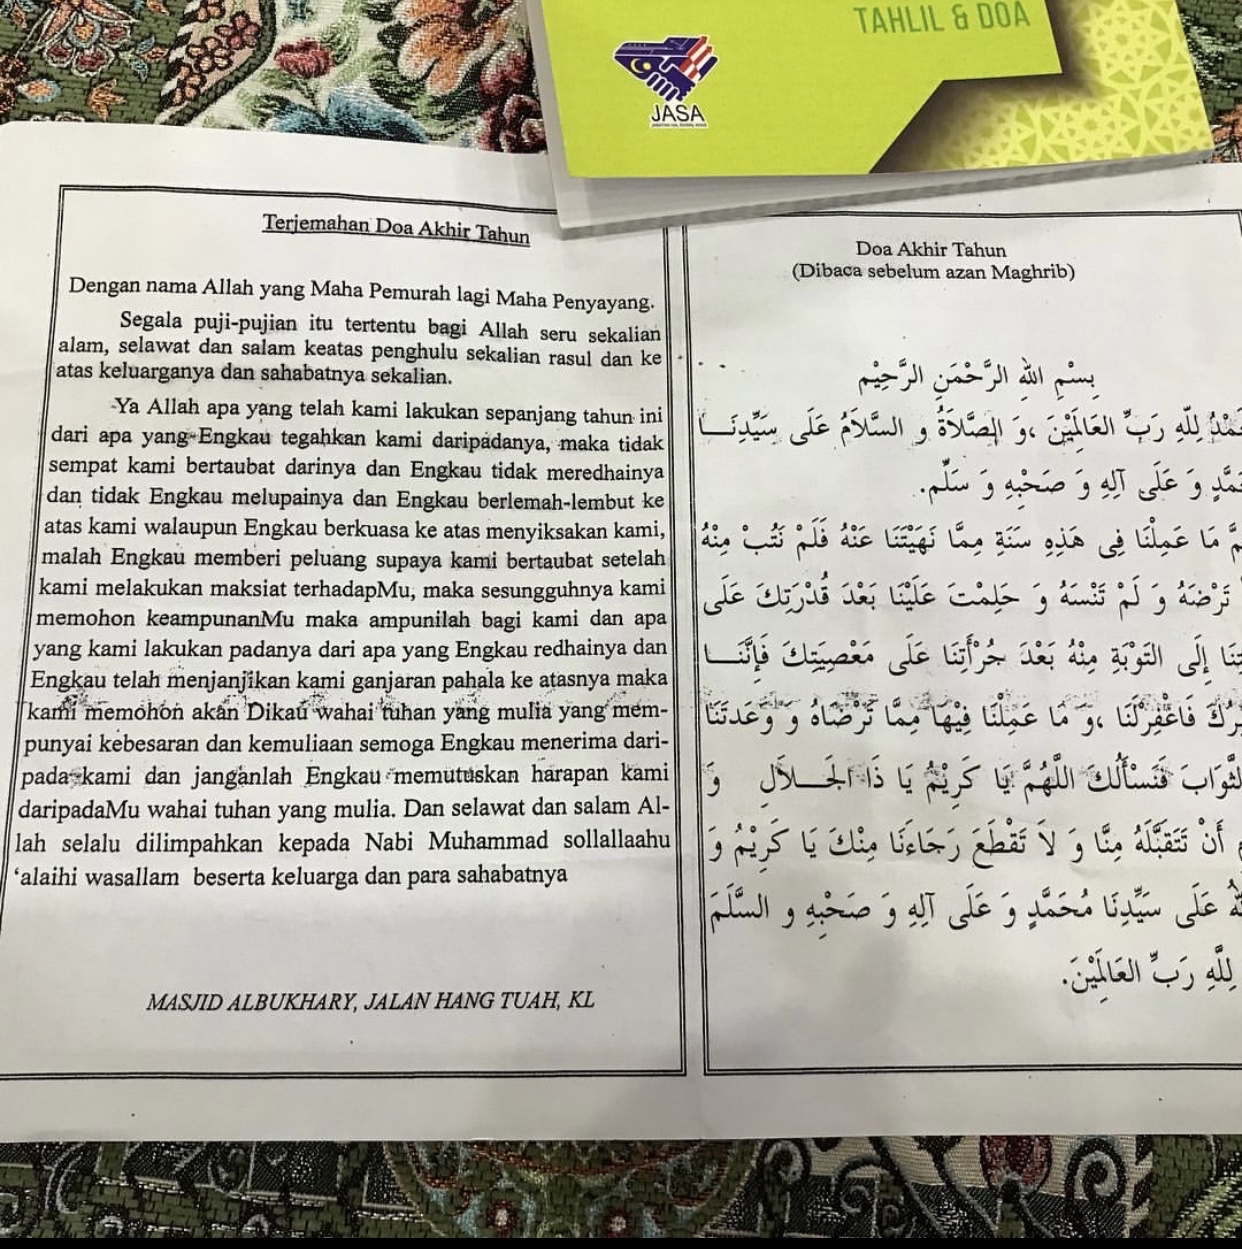 TAHLIL & DOA
JASA
Terjemahan Doa Akhir Tahun
Dengan nama Allah yang Maha Pemurah lagi Maha Penyayang.
Segala puji-pujian itu tertentu bagi Allah seru sekalian
alam, selawat dan salam keatas penghulu sekalian rasul dan ke
atas keluarganya dan sahabatnya sekalian.
Ya Allah apa yang telah kami lakukan sepanjang tahun ini
dari apa yang Engkau tegahkan kami daripadanya, maka tidak
sempat kami bertaubat darinya dan Engkau tidak meredhainya
dan tidak Engkau melupainya dan Engkau berlemah-lembut ke
atas kami walaupun Engkau berkuasa ke atas menyiksakan kami,
malah Engkau memberi peluang supaya kami bertaubat setelah
kami melakukan maksiat terhadapMu, maka sesungguhnya kami
memohon keampunanMu maka ampunilah bagi kami dan apa
yang kami lakukan padanya dari apa yang Engkau redhainya dan
Engkau telah menjanjikan kami ganjaran pahala ke atasnya maka
kami memohon akan Dikau wahai tuhan yang mulia yang mem-
punyai kebesaran dan kemuliaan semoga Engkau menerima dari-
pada kami dan janganlah Engkau memutuskan harapan kami
daripadaMu wahai tuhan yang mulia. Dan selawat dan salam Al-
lah selalu dilimpahkan kepada Nabi Muhammad sollallaahu
‘alaihi wasallam beserta keluarga dan para sahabatnya
MASJID ALBUKHARY, JALAN HANG TUAH, KL
Doa Akhir Tahun
(Dibaca sebelum azan Maghrib)
بِسْمِ اللهِ الرَّحْمَنِ الرَّحِيْمِ
لِلَّهِ رَبِّ العَالَمِيْنَ ،وَ الصَّلاَةُ و السَّلاَمُ عَلَى سَيِّدِنَـــا
وَ عَلَى آلِهِ وَ صَحْبِهِ وَ سَلِّم.
مَا عَمِلْنَا فِى هَذِهِ سَنَةِ مِمَّا نَهَيْتَنَا عَنْهُ فَلَمْ نَتُبْ مِنْهُ
تَرْضَهُ وَ لَمْ تَنْسَهُ وَ حَلِمْتَ عَلَيْنَا بَعْدَ قُدْرَتِكَ عَلَى
إِلَى التَوْبَةِ مِنْهُ بَعْدَ جُرْأَتِنَا عَلَى مَعْصِيَتِكَ فَإِنَّنَــا
فَاغْفِرْلَنَا ،وَ مَا عَمِلْنَا فِيْهَا مِمَّا تَرْضَاهُ وَ وَعَدتَنَا
فَنَسْأَلُكَ اللَّهُمَّ يَا كَرِيْمُ يَا ذَا الجَــلاَلِ وَ
أَنْ تَتَقَبَّلَهُ مِنَّا وَ لاَ تَقْطَعَ رَجَاءَنَا مِنْكَ يَا كَرِيْمُ وَ
عَلَى سَيِّدِنَا مُحَمَّدٍ وَ عَلَى آلِهِ وَ صَحْبِهِ و السَّلَمَ
لِلَّهِ رَبِّ العَالَمِيْنَ.